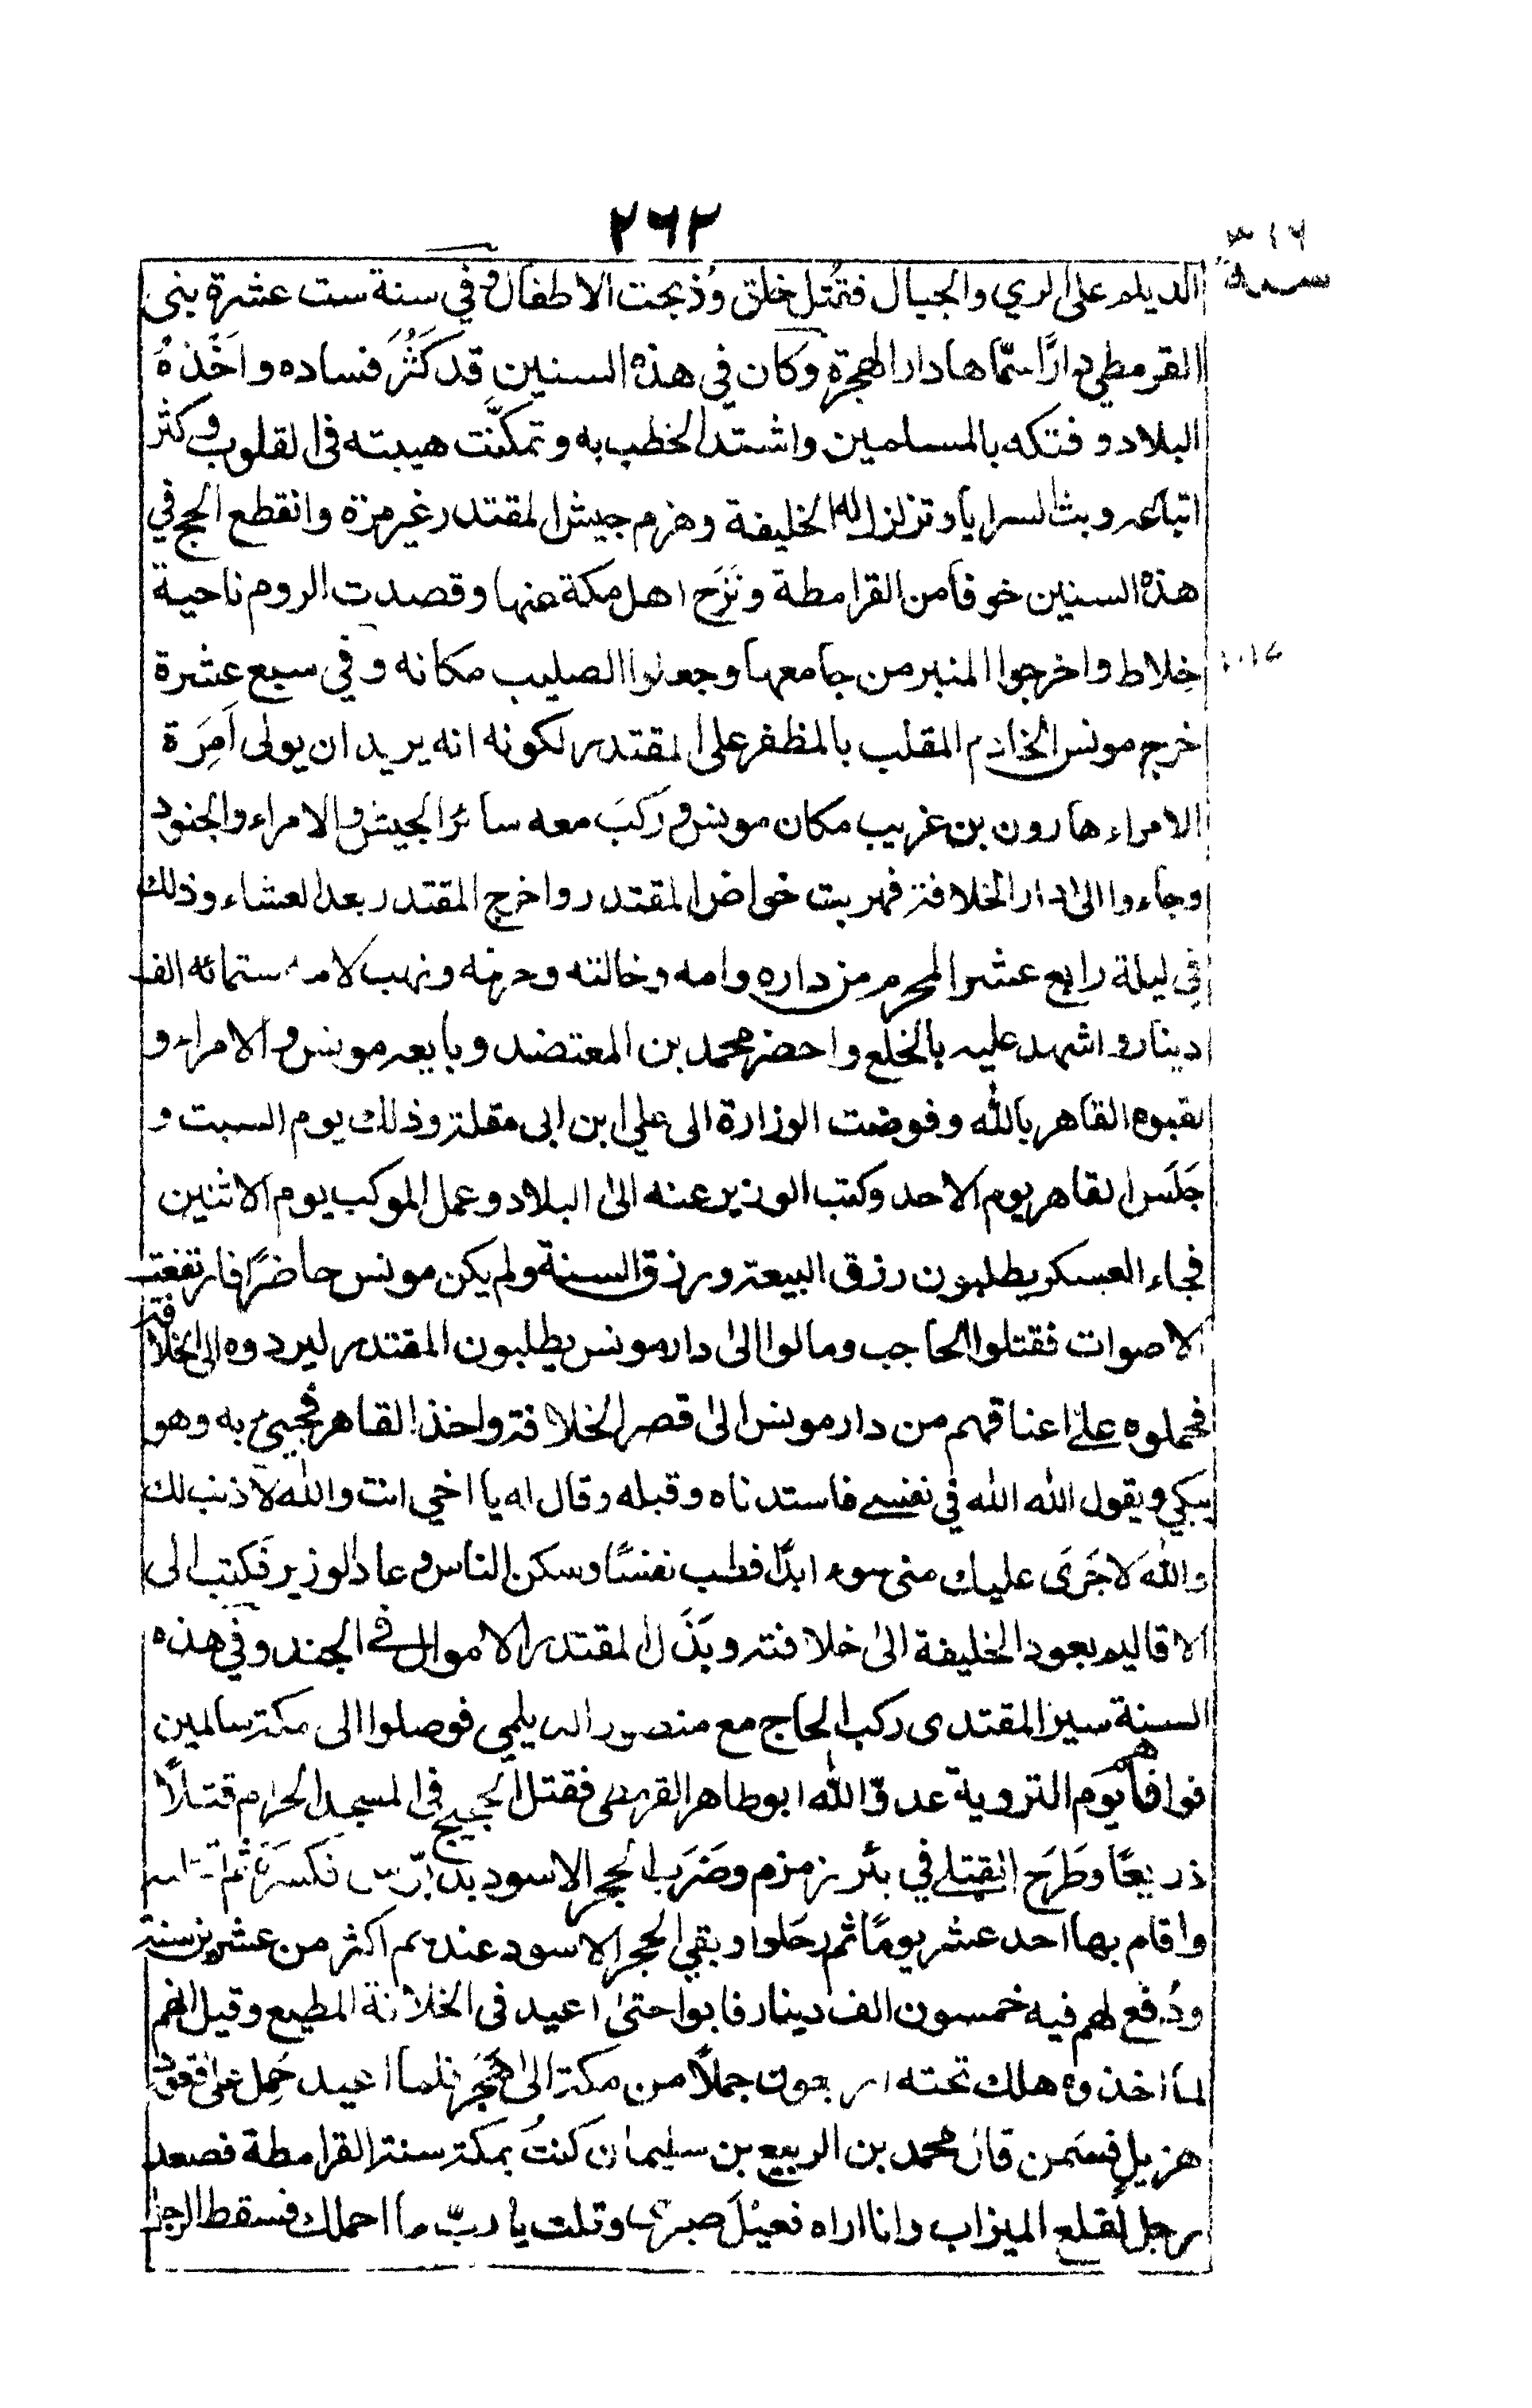 ٢٦٢
٣١٦
سنة
الديلم على الري والجبال فقُتل خلق وذُبحت الاطفال وفي سنة ست عشرة بنى
القرمطي دارًا سمّاها دار الهجرة وكان في هذه السنين قد كَثُرَ فساده واَخَّذهُ
البلاد وفتكه بالمسلمين واشتد الخطب به وتمكنّت هيبته في القلوب وكثر
اتباعه وبث السرايا وتزلزل له الخليفة وهزم جيش المقتدر غير مرة وانقطع الحج في
هذه السنين خوفا من القرامطة ونَزَح اهل مكة عنها وقصدت الروم ناحية
خِلاط واخرجوا المنبر من جامعها وجعلوا الصليب مكانه وفي سبع عشرة
خرج مونس الخادم المقلب بالمظفر على المقتدر لكونه انه يريد ان يولى اَمِرَة
الامراء هارون بن غريب مكان مونس وركبَ معه سائر الجيش والامراء والجنود
وجاءوا الى دار الخلافة فهربت خواص المقتدر واخرج المقتدر بعد العشاء وذلك
في ليلة رابع عشر المحرم من داره وامه وخالته وحرمه ونهب لامه ستمائه الف
دينار واشهد عليه بالخلع واحضر محمد بن المعتضد وبايعه مونس والامراء و
لقبوه القاهر بالله وفوضت الوزارة الى علي ابن ابى مقلة وذلك يوم السبت و
جَلَسَ القاهر يوم الاحد وكتب الوزير عنه الى البلاد وعمل الموكب يوم الاثنين
فجاء العسكر يطلبون رزق البيعة ورزق السنة ولم يكن مونس حاضرًا فارتفعت
الاصوات فقتلوا الحاجب ومالوا الى دار مونس يطلبون المقتدر ليردوه الى الخلافة
فحملوه على اعناقهم من دار مونس الى قصر الخلافة واخذ القاهر فجيئ به وهو
يبكي ويقول الله الله في نفسي فاستدناه وقبله وقال له يا اخي انت والله لا ذنب لك
والله لا جَرَى عليك منى سوء ابدًا فطب نفسًا وسكن الناس وعاد الوزير فكتب الى
الاقاليم بعود الخليفة الى خلافته وبَذَل المقتدر الاموال في الجند وفي هذه
السنة سير المقتدى ركب الحاج مع منصور الديلمي فوصلوا الى مكة سالمين
فوافاهم يوم التروية عدوّ الله ابو طاهر القرمطى فقتل الحجيج في المسجد الحرام قتلًا
ذريعًا وطَرَح القتلى في بئر زمزم وضَرَب الحجر الاسود بدبّوس فكسرَهُ ثم
واقام بها احد عشر يومًا ثم رحَلوا وبقي الحجر الاسود عندهم اكثر من عشرين سنة
ودُفع لهم فيه خمسون الف دينار فابوا حتى اعيد في الخلافة المطيع وقيل انهم
لما اخذوه هلك تحته اربعون جملًا من مكة الى هَجَر فلما اعيد حُمِل على قعود
هزيل فسَمن قال محمد بن الربيع بن سليمان كنتُ بمكة سنة القرامطة فصعد
رجل لقلع الميزاب وانا اراه فعِيْلَ صبرى وقلت يا ربّ ما احملك فسقط الرجل